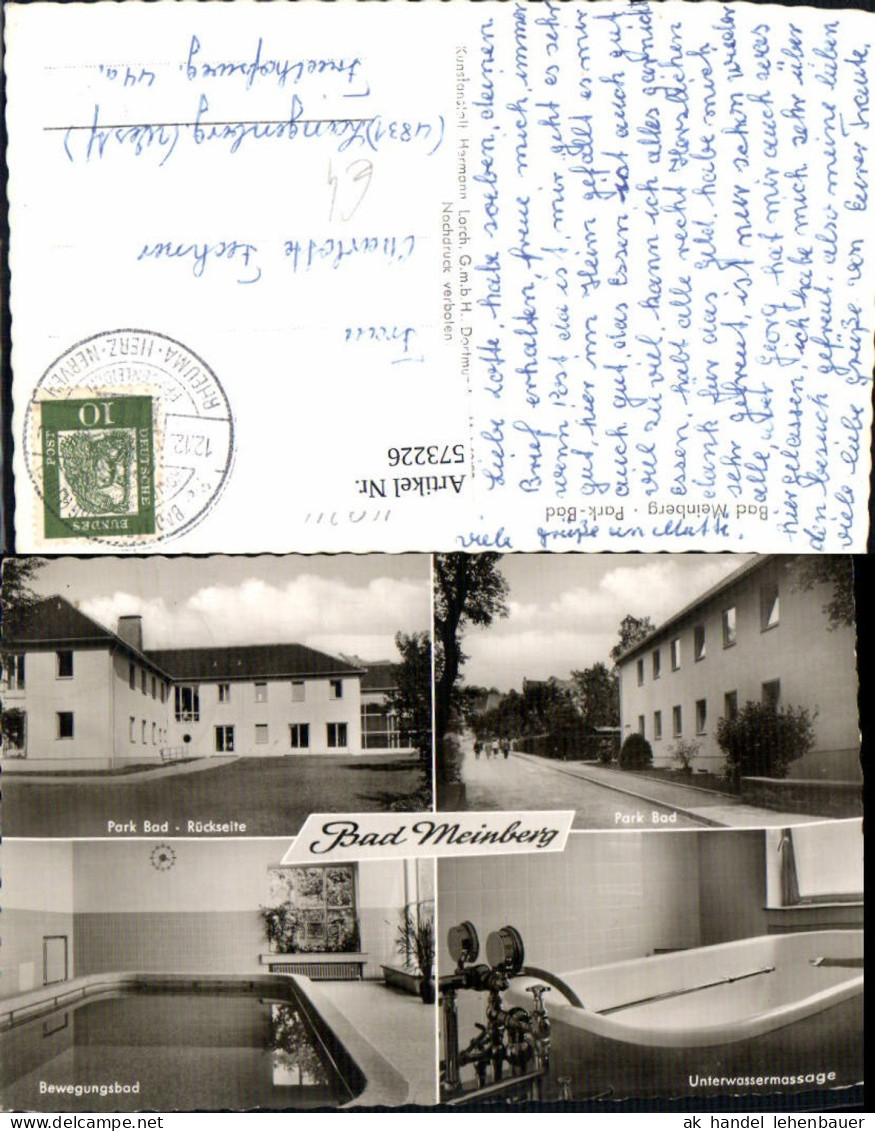 Liebe Lotte, habe soeben, deinen
Brief erhalten, freue mich, immer
wenn Post da ist, mir geht es sehr
gut, hier im Heim gefällt es mir
auch gut, das Essen ist auch gut
viel zu viel. kann ich alles garnicht
essen, habt alle recht Herzlichen
dank für das Geld. habe mich
sehr gefreut, ist nur schon wieder
alle, Georg hat mir auch was
hiergelassen, ich habe mich sehr über
den besuch gefreut, also meine lieben
viele liebe grüße von Eurer Traute.
viele grüße an Mutti.
Bad Meinberg · Park-Bad
Kunstanstalt Hermann Lorch, G.m.b.H., Dortmund
Nachdruck verboten
Artikel Nr.
573226
RHEUMA·HERZ·NERVEN
12.12.
BAD
DEUTSCHE
BUNDES
POST
10
Frau
Charlotte
(4831) Langenberg (Westf)
44a,
E4
Park Bad - Rückseite
Park Bad
Bad Meinberg
Bewegungsbad
Unterwassermassage
ak handel lehenbauer